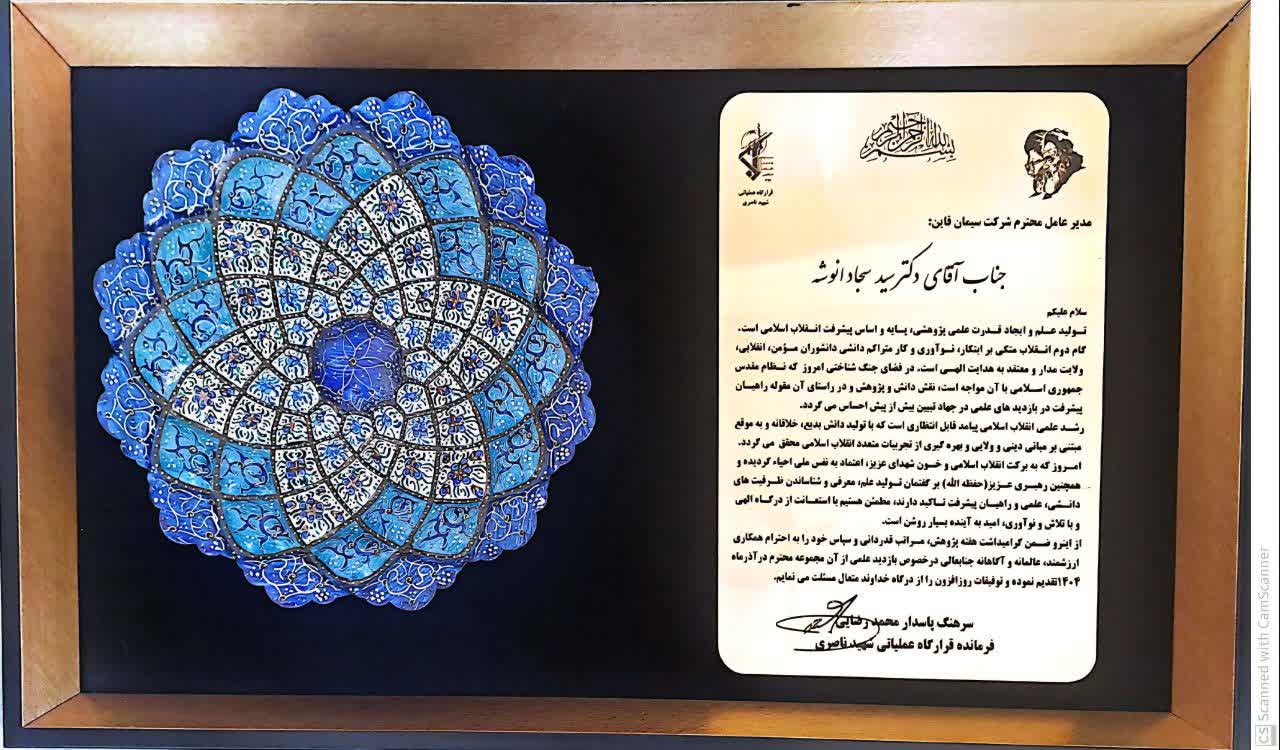 بسم الله الرحمن الرحیم
قرارگاه عملیاتی
شهید ناصری
مدیر عامل محترم شرکت سیمان قاین:
جناب آقای دکتر سید سجاد انوشه
سلام علیکم
تولید علم و ایجاد قدرت علمی پژوهشی، پایه و اساس پیشرفت انقلاب اسلامی است.
گام دوم انقلاب متکی بر ابتکار، نوآوری و کار متراکم دانشی دانشوران مؤمن، انقلابی،
ولایت مدار و معتقد به هدایت الهی است. در فضای جنگ شناختی امروز که نظام مقدس
جمهوری اسلامی با آن مواجه است، نقش دانش و پژوهش و در راستای آن مقوله راهیان
پیشرفت در بازدید های علمی در جهاد تبیین بیش از پیش احساس می گردد.
رشد علمی انقلاب اسلامی پیامد قابل انتظاری است که با تولید دانش بدیع، خلاقانه و به موقع
مبتنی بر مبانی دینی و ولایی و بهره گیری از تجربیات متعدد انقلاب اسلامی محقق می گردد.
امروز که به برکت انقلاب اسلامی و خون شهدای عزیز، اعتماد به نفس ملی احیاء گردیده و
همچنین رهبری عزیز(حفظه الله) بر گفتمان تولید علم، معرفی و شناساندن ظرفیت های
دانشی، علمی و راهیان پیشرفت تاکید دارند، مطمئن هستیم با استعانت از درگاه الهی
و با تلاش و نوآوری، امید به آینده بسیار روشن است.
از اینرو ضمن گرامیداشت هفته پژوهش، مراتب قدردانی و سپاس خود را به احترام همکاری
ارزشمند، عالمانه و آگاهانه جنابعالی درخصوص بازدید علمی از آن مجموعه محترم درآذرماه
۱۴۰۴تقدیم نموده و توفیقات روزافزون را از درگاه خداوند متعال مسئلت می نمایم.
سرهنگ پاسدار محمد رضایی
فرمانده قرارگاه عملیاتی شهید ناصری
CS Scanned with CamScanner